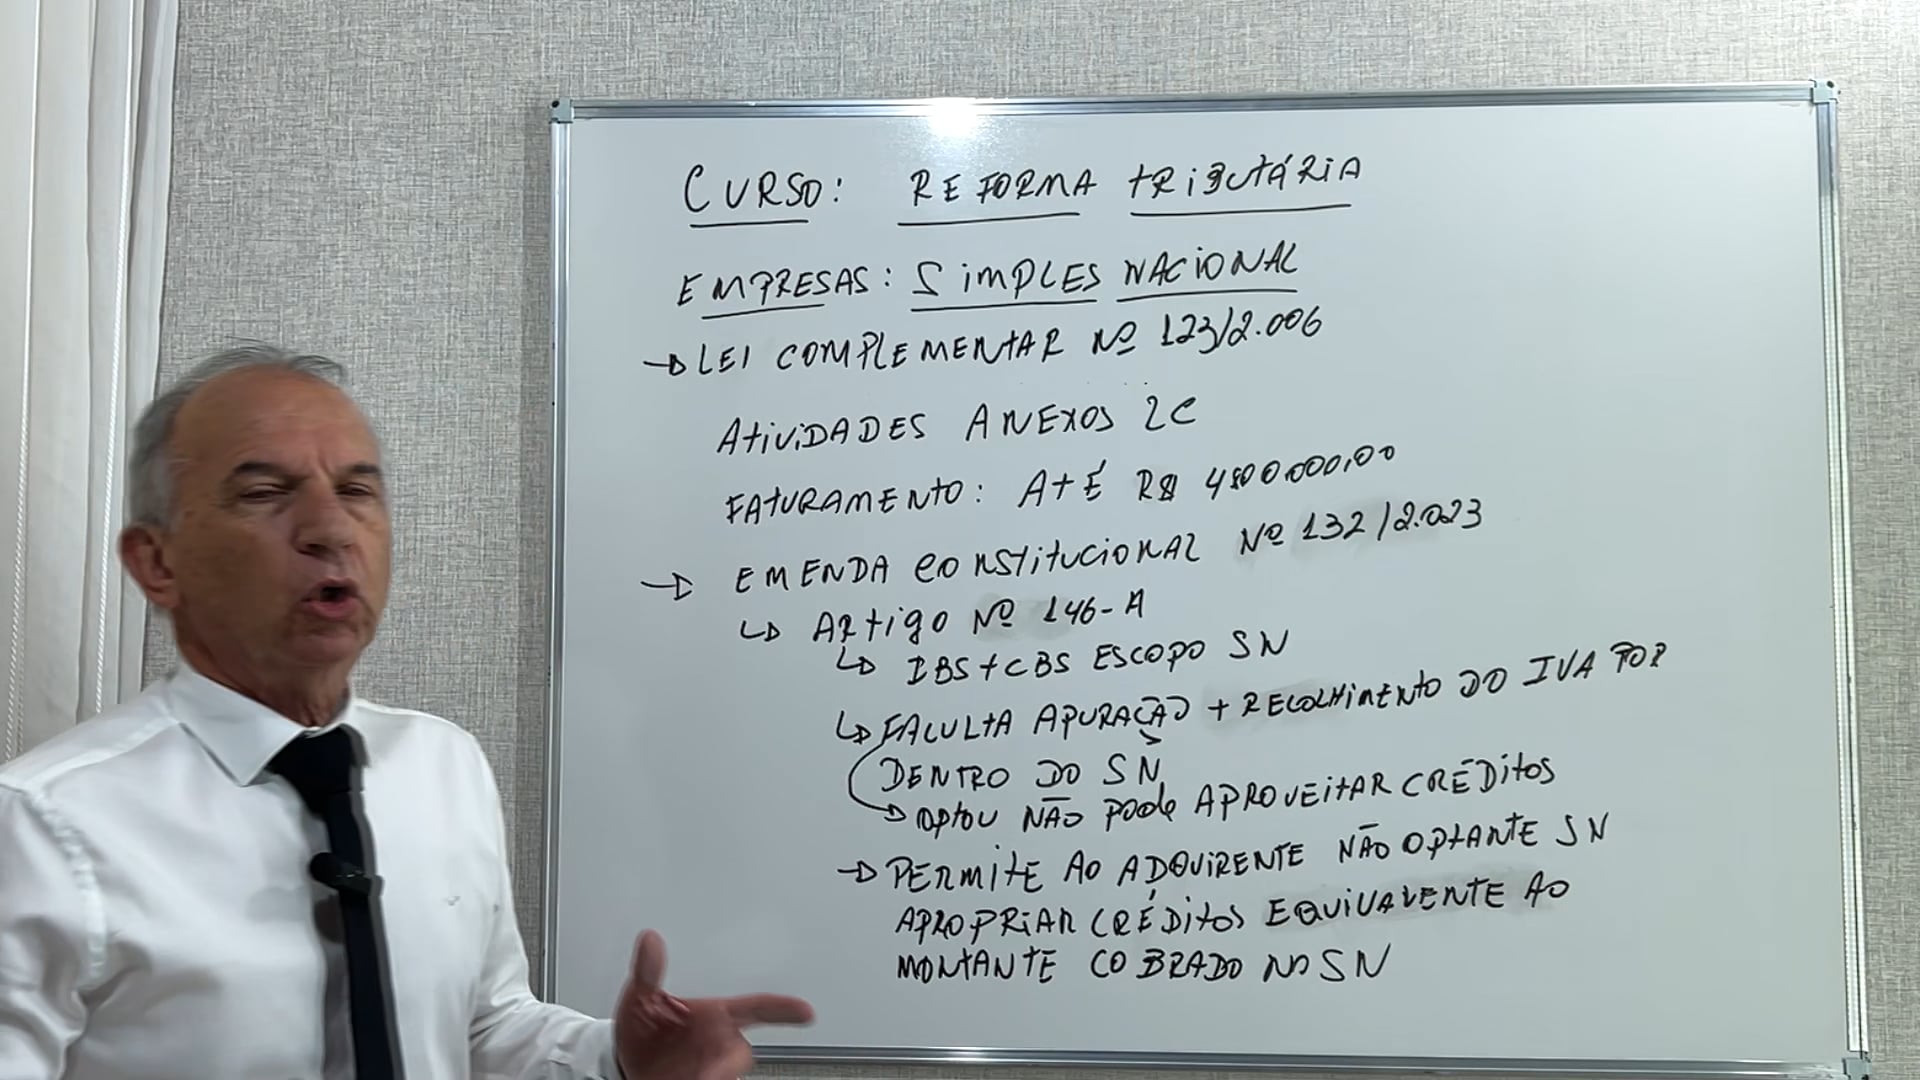 CURSO: REFORMA TRIBUTÁRIA
EMPRESAS: SIMPLES NACIONAL
→ LEI COMPLEMENTAR Nº 123/2.006
ATIVIDADES ANEXOS LC
FATURAMENTO: ATÉ R$ 4800000,00
→ EMENDA CONSTITUCIONAL Nº 132/2.023
↳ ARTIGO Nº 146-A
↳ IBS + CBS ESCOPO SN
↳ FACULTA APURAÇÃO + RECOLHIMENTO DO IVA POR
DENTRO DO SN
→ OPTOU NÃO PODE APROVEITAR CRÉDITOS
→ PERMITE AO ADQUIRENTE NÃO OPTANTE SN
APROPRIAR CRÉDITOS EQUIVALENTE AO
MONTANTE COBRADO NO SN